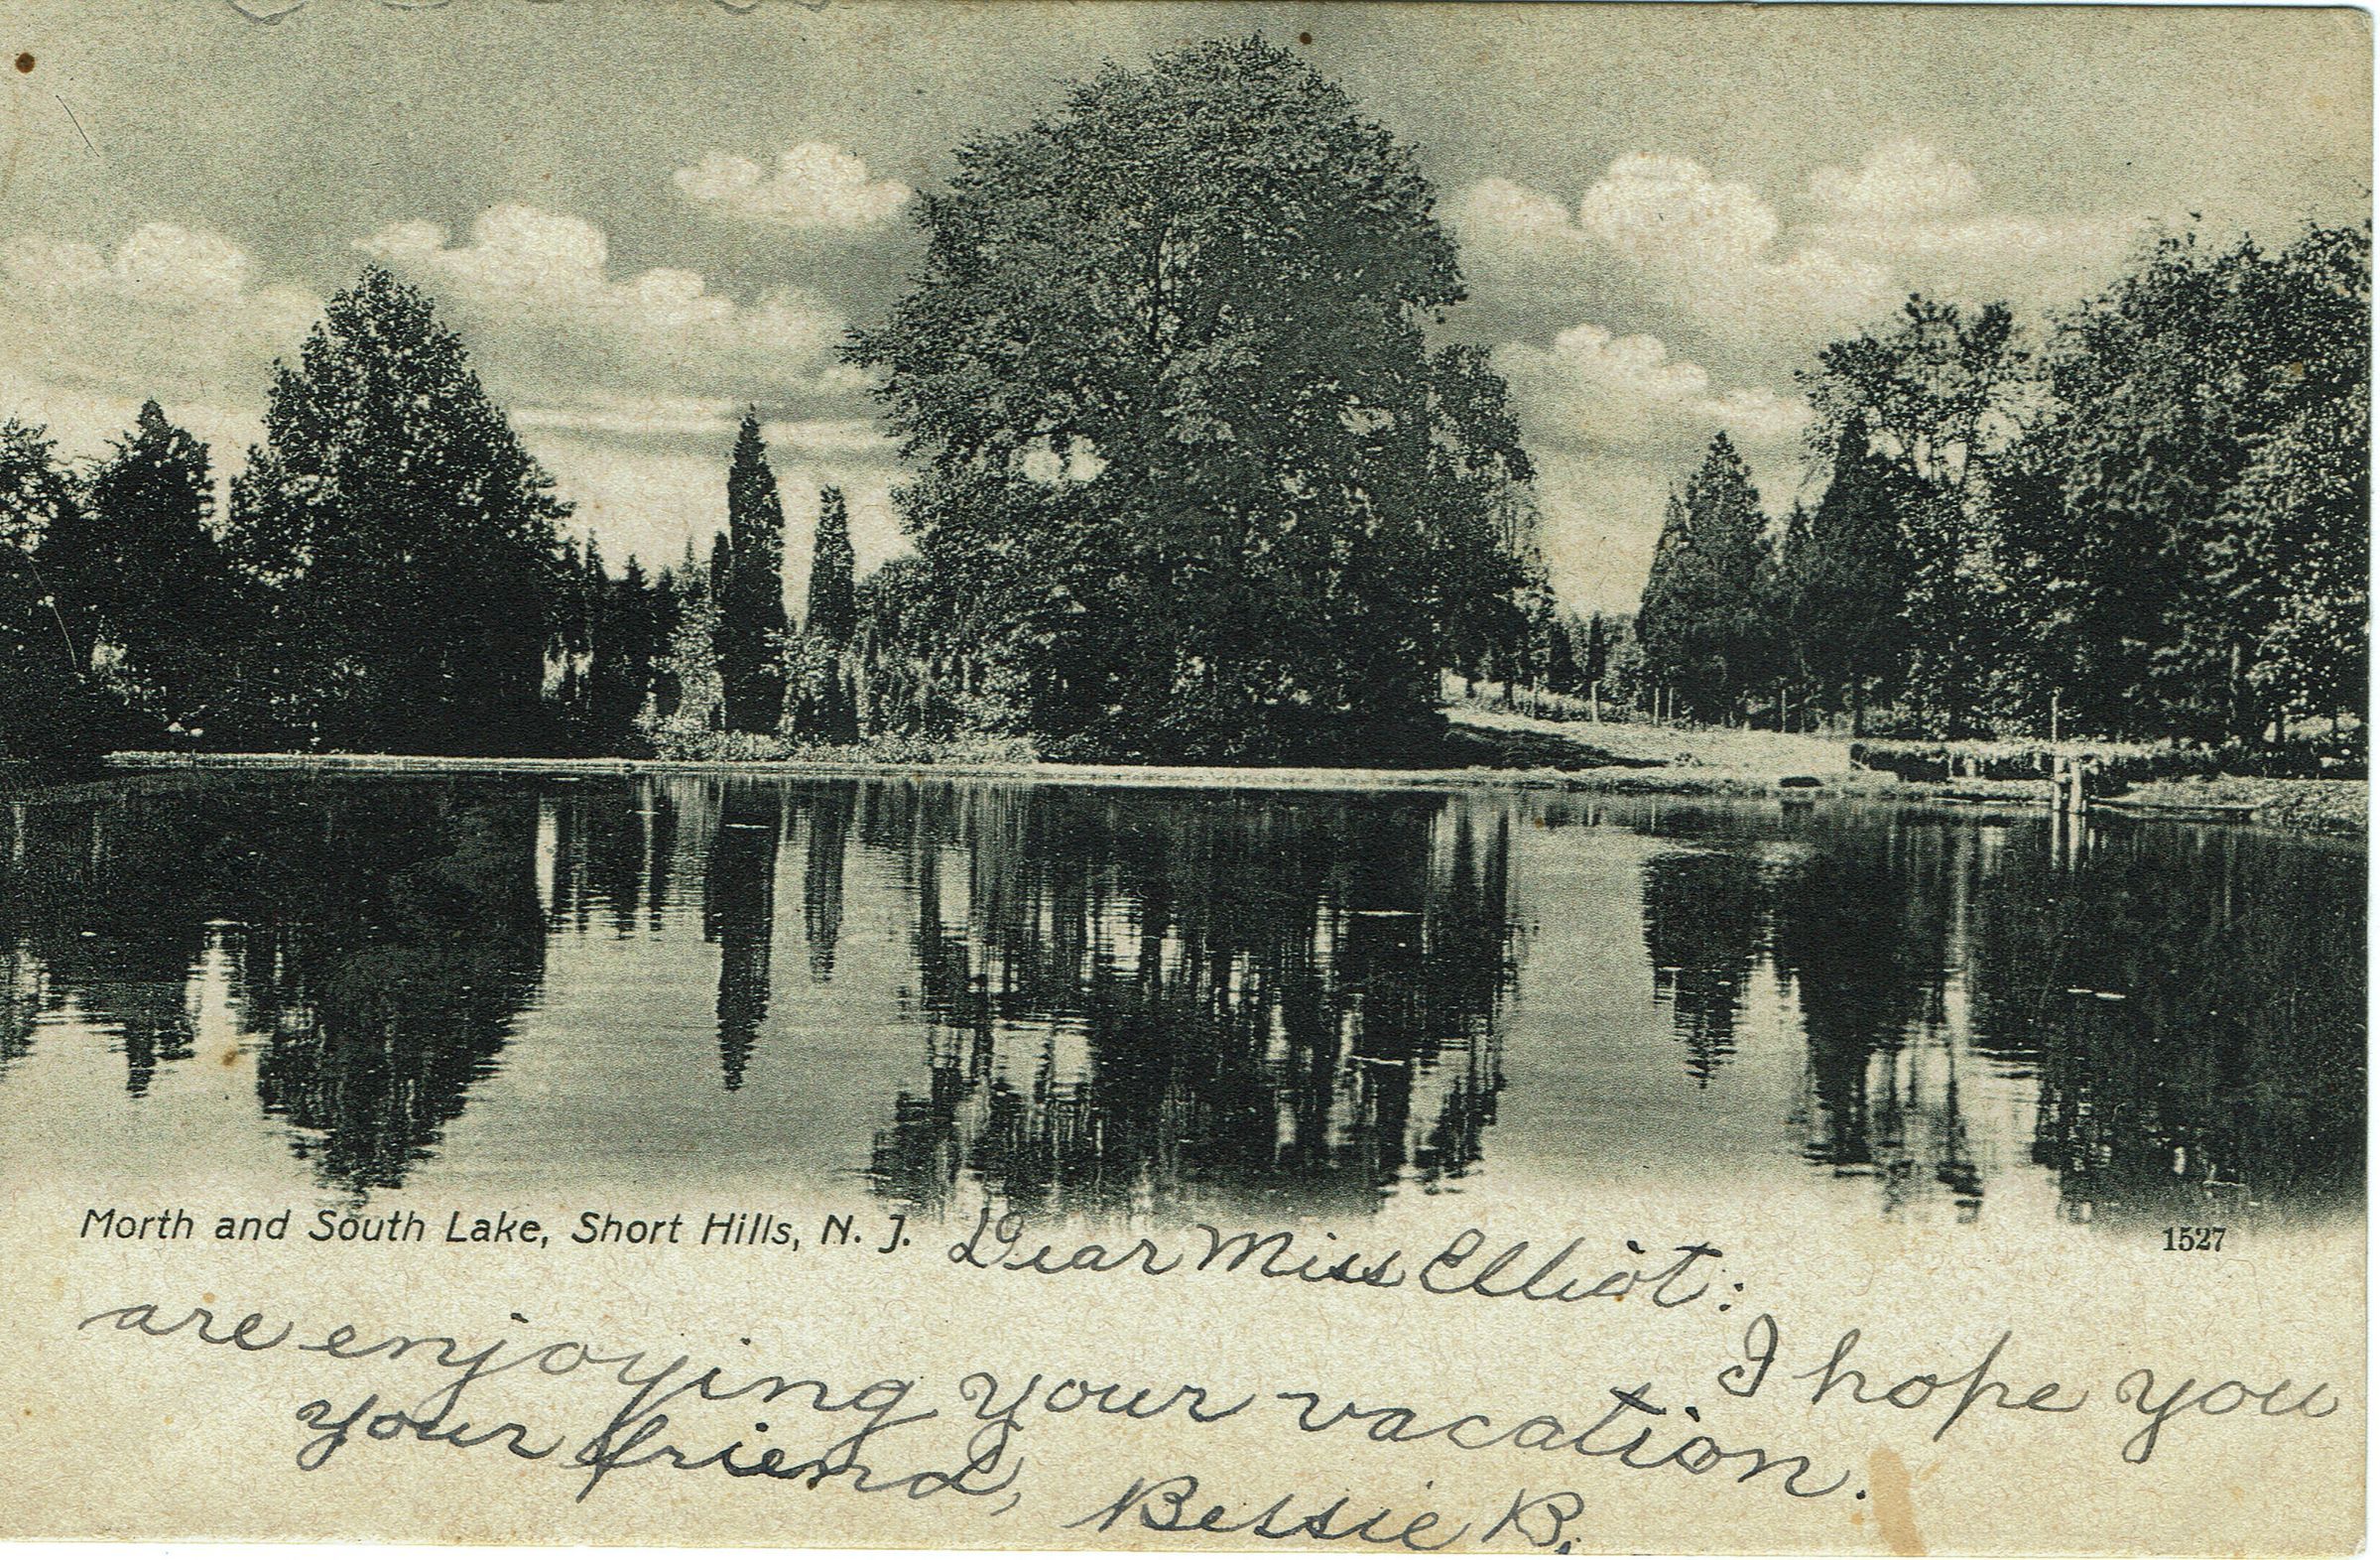 Morth and South Lake, Short Hills, N. J.
1527
Dear Miss Elliot:
I hope you
are enjoying your vacation.
your friend,
Bessie B.